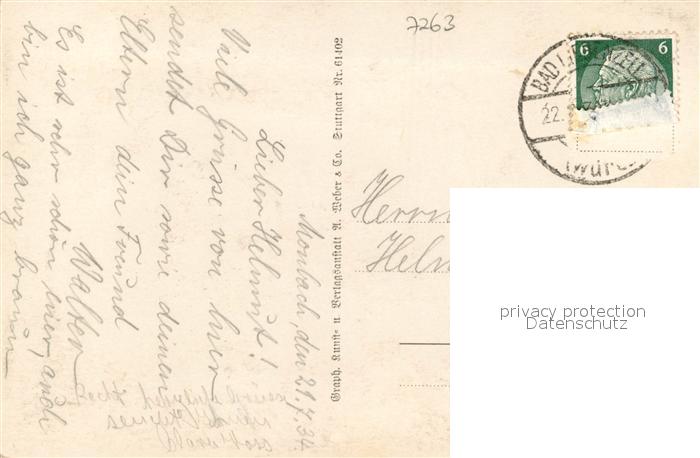 7263
6 6
BAD LIEBENZELL
22.
(Württ
Monbach, den 21.7.34
Lieber Helmut!
Viele Grüsse von hier
sendet Dir sowie deinen
Eltern dein Freund
Walter
Es ist sehr schön hier, auch
bin ich ganz braun
Graph. Kunst- u. Verlagsanstalt A. Weber & Co. Stuttgart Nr. 61402
Herrn
Helm
privacy protection
Datenschutz